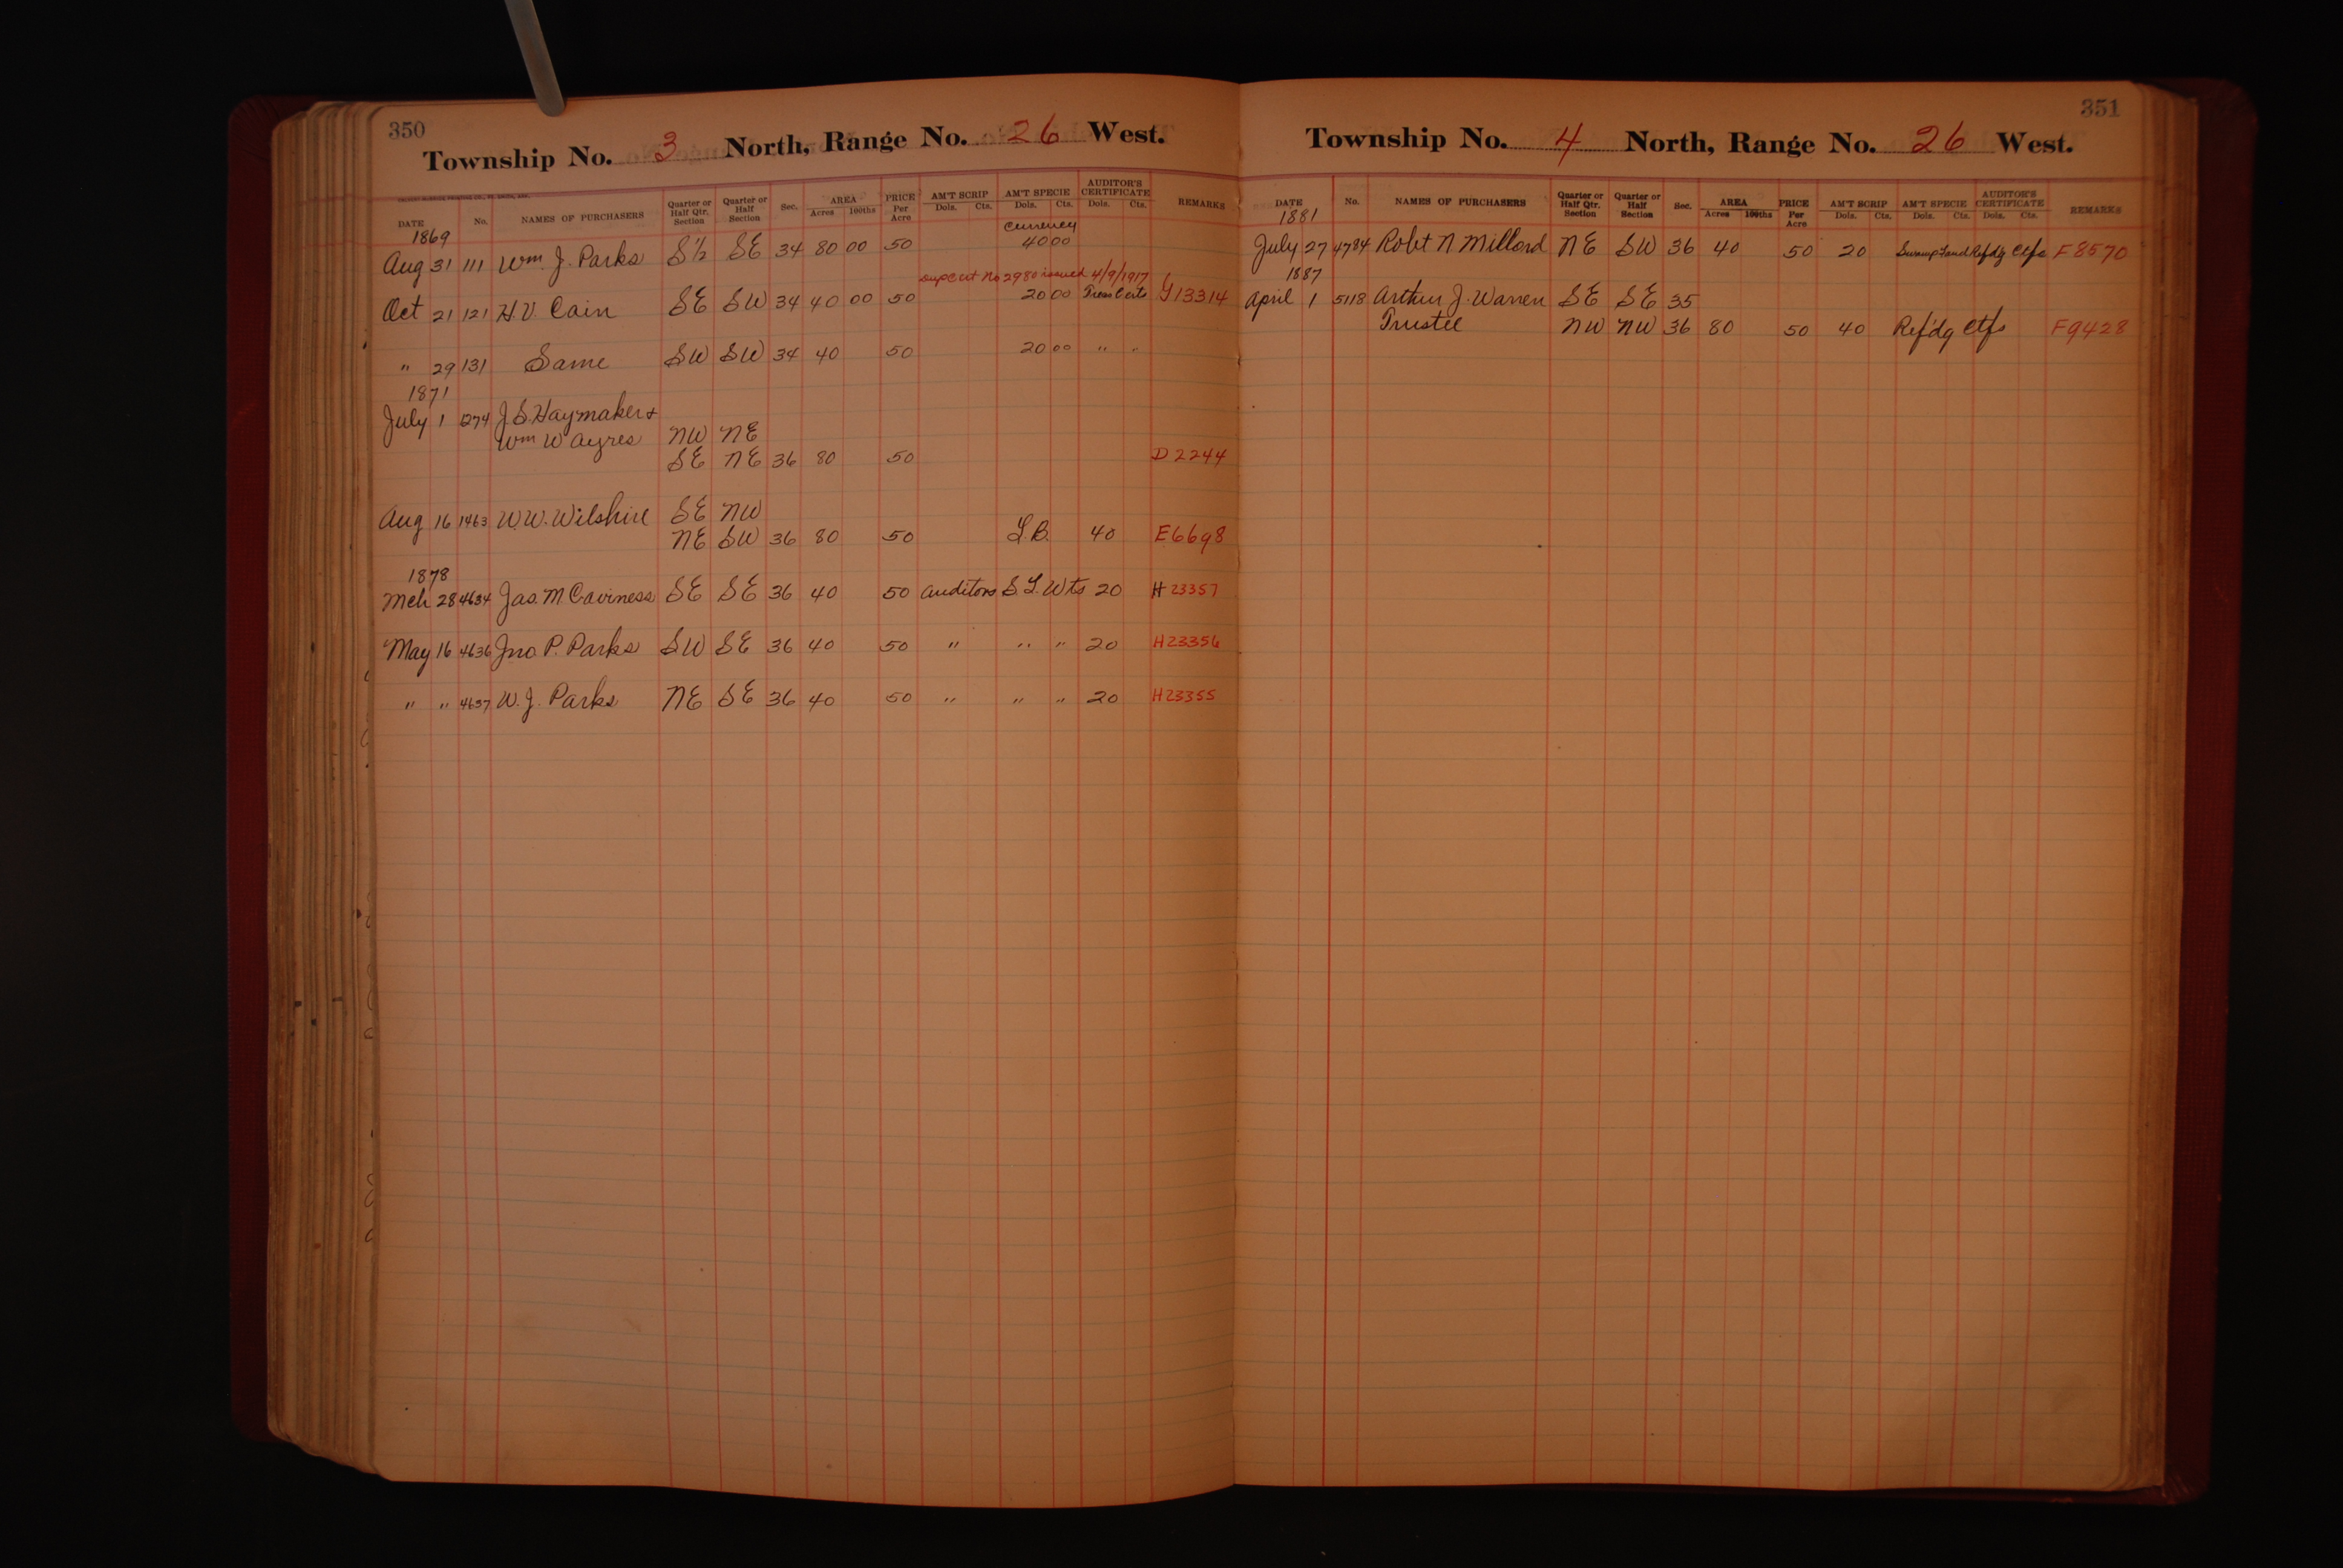 350
Township No. 3 North, Range No. 26 West.
DATE No. NAMES OF PURCHASERS Quarter or Half Qtr. Section Quarter or Half Section Sec. AREA Acres 100ths PRICE Per Acre AM'T SCRIP Dols. Cts. AM'T SPECIE Dols. Cts. AUDITOR'S CERTIFICATE Dols. Cts. REMARKS
1869 Currency
Aug 31 111 Wm. J. Parks S½ SE 34 80 00 50 40 00
Sup Cert No 2980 issued 4/9/1917
Oct 21 121 H.V. Cain SE SW 34 40 00 50 20 00 Treas Certs Y13314
" 29 131 Same SW SW 34 40 50 20 00 " "
1871
July 1 1274 J.S. Haymaker +
Wm W Ayres NW NE
SE NE 36 80 50 D2244
Aug 16 1463 W.W. Wilshire SE NW
NE SW 36 80 50 L.B. 40 E6698
1878
Mch 28 4634 Jas. M. Caviness SE SE 36 40 50 Auditors S.L. Wts 20 H23357
May 16 4636 Jno P. Parks SW SE 36 40 50 " " " 20 H23356
" " 4637 W.J. Parks NE SE 36 40 50 " " " 20 H23355
351
Township No. 4 North, Range No. 26 West.
DATE No. NAMES OF PURCHASERS Quarter or Half Qtr. Section Quarter or Half Section Sec. AREA Acres 100ths PRICE Per Acre AM'T SCRIP Dols. Cts. AM'T SPECIE Dols. Cts. AUDITOR'S CERTIFICATE Dols. Cts. REMARKS
1881
July 27 4784 Robt N Millard NE SW 36 40 50 20 Swamp Land Refdg Ctfs F8570
1887
April 1 5118 Arthur J. Warren SE SE 35
Trustee NW NW 36 80 50 40 Ref'dg Ctfs F9428